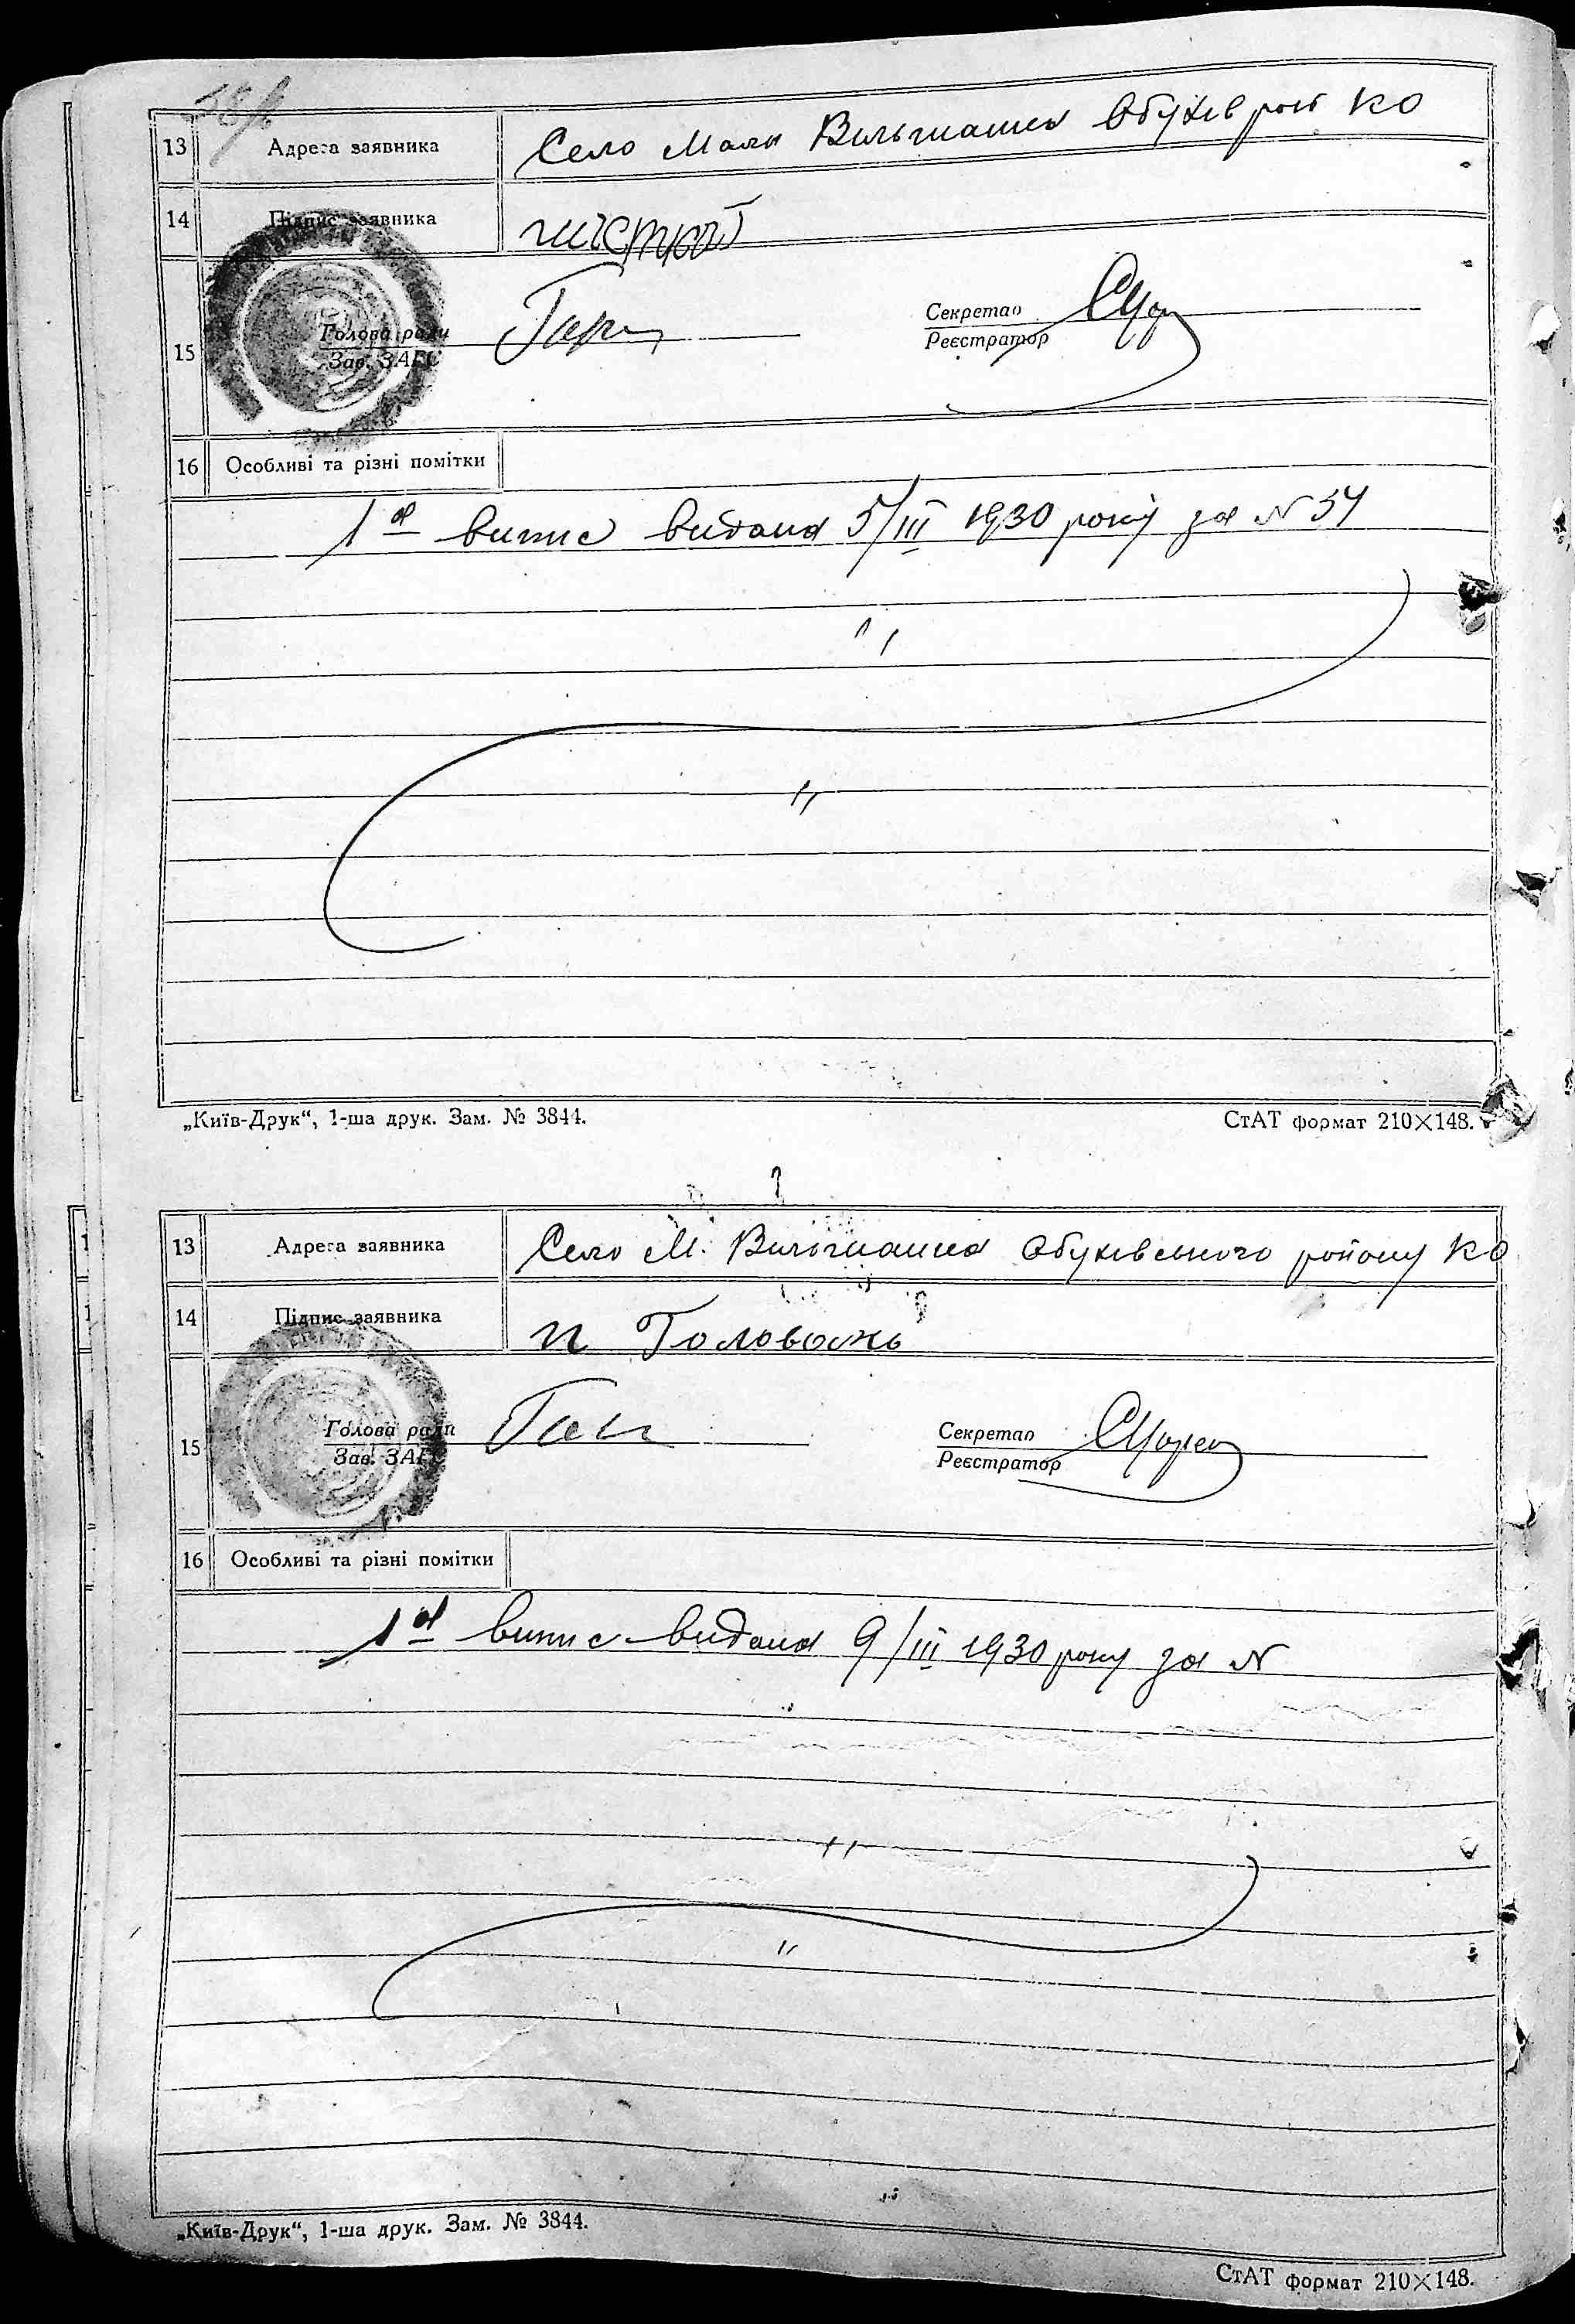 13 Адреса заявника Село Мала Вильшанка Обухів рай КО
14 Підпис заявника
15 Голова ради Секретар
Зав. ЗАГС Реєстратор
16 Особливі та різні помітки
1а випис видана 5/III 1930 року за N 54
„Київ-Друк“, 1-ша друк. Зам. № 3844. СтАТ формат 210×148.
13 Адреса заявника Село М. Вильшанка Обухівського району КО
14 Підпис заявника п Головань
15 Голова ради Секретар
Зав. ЗАГС Реєстратор
16 Особливі та різні помітки
1а випис видана 9/III 1930 року за N
„Київ-Друк“, 1-ша друк. Зам. № 3844.
СтАТ формат 210×148.